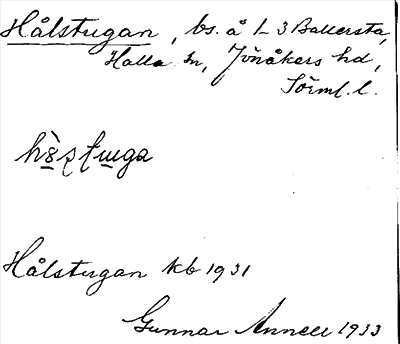 Hålstugan, bs. å 1-3 Ballersta,
Halla sn, Jönåkers hd,
Sörml. l.
Hålstugan kb 1931
Gunnar Annell 1933